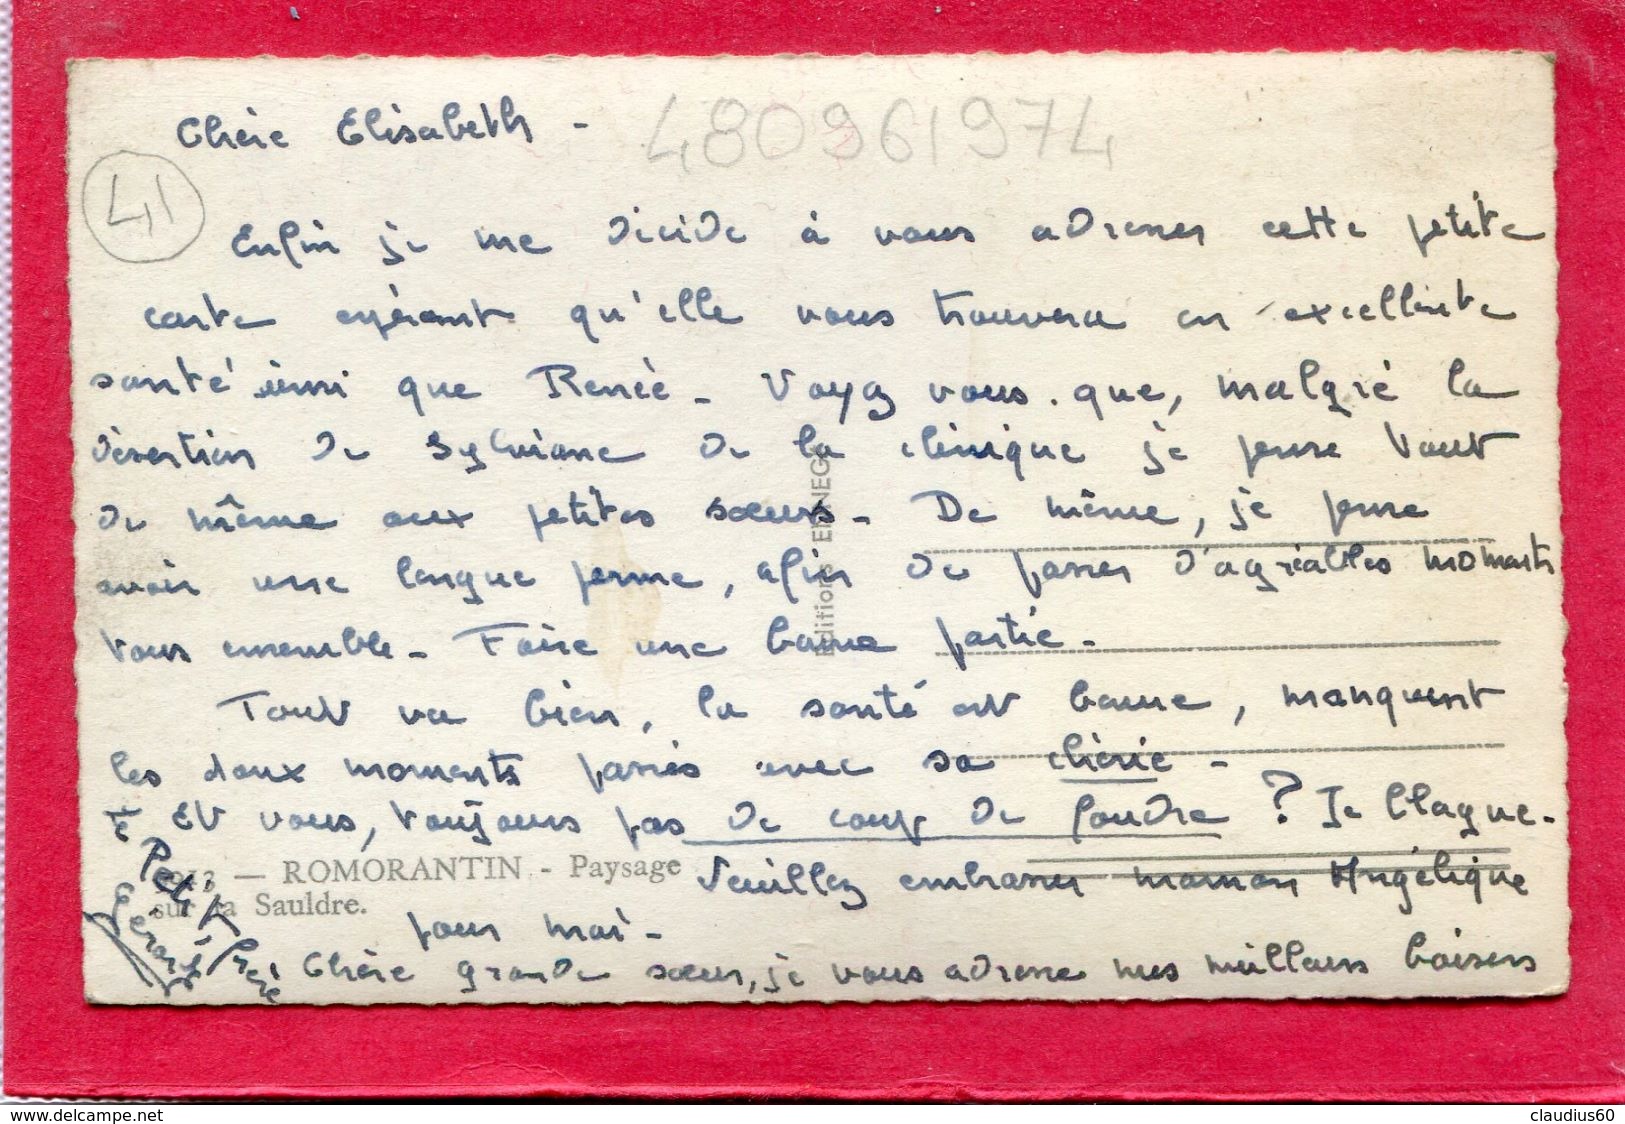 Chère Elisabeth -
480961974
41
Enfin je me décide à vous adresser cette petite
carte espérant qu'elle vous trouvera en excellente
santé ainsi que Renée - Voyez vous. que, malgré la
désertion de Sylviane de la clinique je pense tout
de même aux petites sœurs - De même, je pense
avoir une longue perme, afin de passer d'agréables moments
tous ensemble - Faire une bonne partie -
Tout va bien, la santé est bonne, manquent
les doux moments passés avec sa chérie -
Et vous, toujours pas de coup de foudre ? Je blague -
Veuillez embrasser maman Angélique
pour moi -
Chère grande sœur, je vous adresse mes meilleurs baisers
Petit frère
Gérard
Editions ENNEG
— ROMORANTIN - Paysage
sur la Sauldre.
www.delcampe.net
claudius60